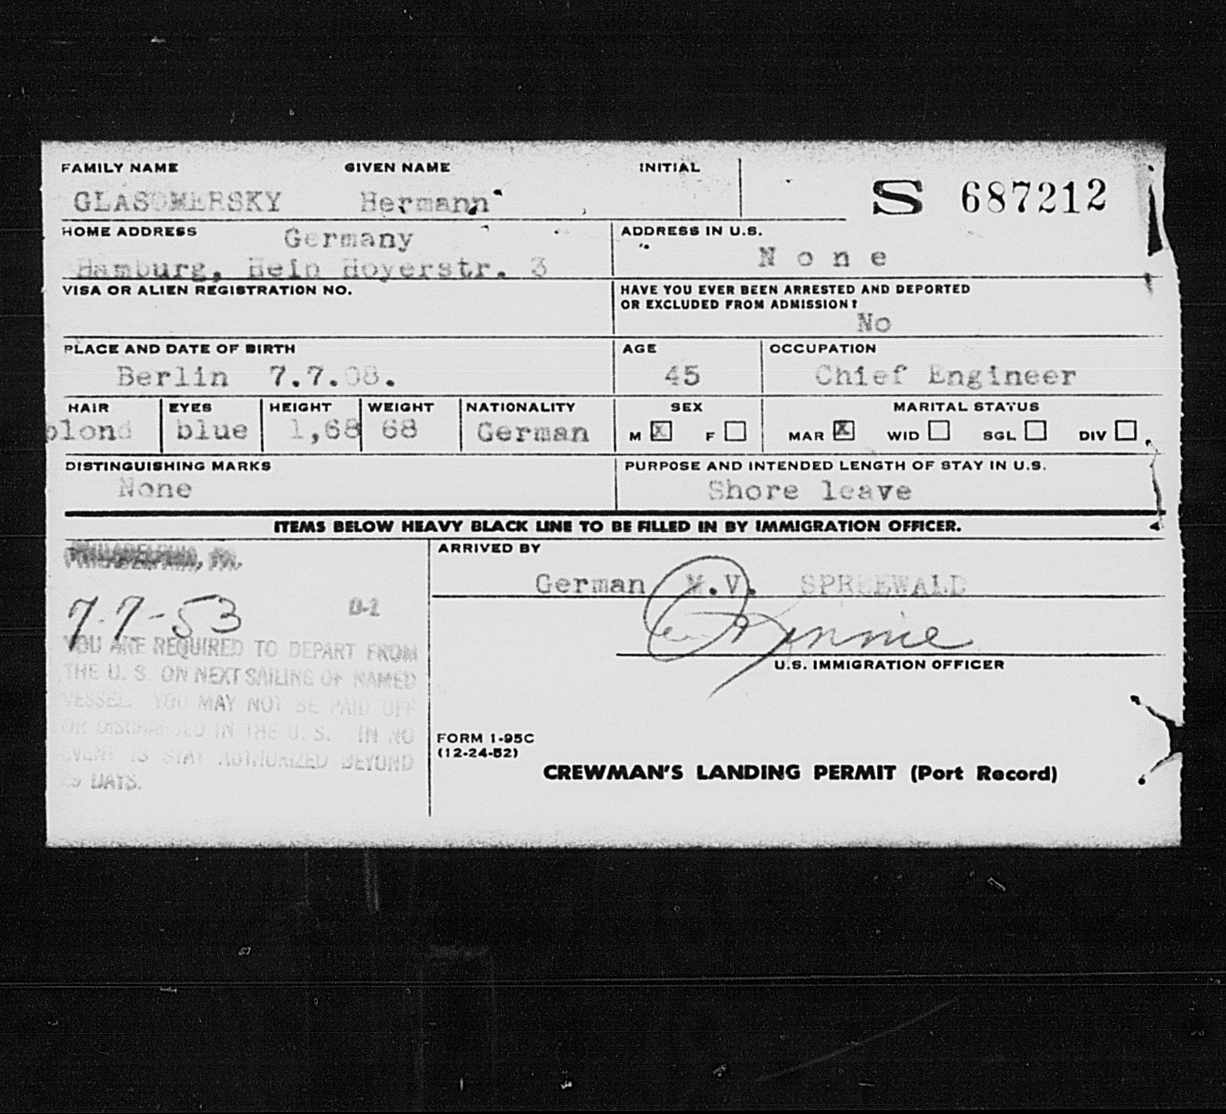 FAMILY NAME GIVEN NAME INITIAL
GLASOMERSKY Hermann S 687212
HOME ADDRESS Germany ADDRESS IN U.S.
Hamburg, Hein Hoyerstr. 3 None
VISA OR ALIEN REGISTRATION NO. HAVE YOU EVER BEEN ARRESTED AND DEPORTED
OR EXCLUDED FROM ADMISSION?
No
PLACE AND DATE OF BIRTH AGE OCCUPATION
Berlin 7.7.08. 45 Chief Engineer
HAIR EYES HEIGHT WEIGHT NATIONALITY SEX MARITAL STATUS
blond blue 1,68 68 German M X F MAR X WID SGL DIV
DISTINGUISHING MARKS PURPOSE AND INTENDED LENGTH OF STAY IN U.S.
None Shore leave
ITEMS BELOW HEAVY BLACK LINE TO BE FILLED IN BY IMMIGRATION OFFICER.
PHILADELPHIA, PA. ARRIVED BY
German M.V. SPREEWALD
7-7-53 D-1
YOU ARE REQUIRED TO DEPART FROM
THE U. S. ON NEXT SAILING OF NAMED
VESSEL. YOU MAY NOT BE PAID OFF
OR DISCHARGED IN THE U. S. IN NO
EVENT IS STAY AUTHORIZED BEYOND
29 DAYS.
U.S. IMMIGRATION OFFICER
FORM I-95C
(12-24-52)
CREWMAN'S LANDING PERMIT (Port Record)